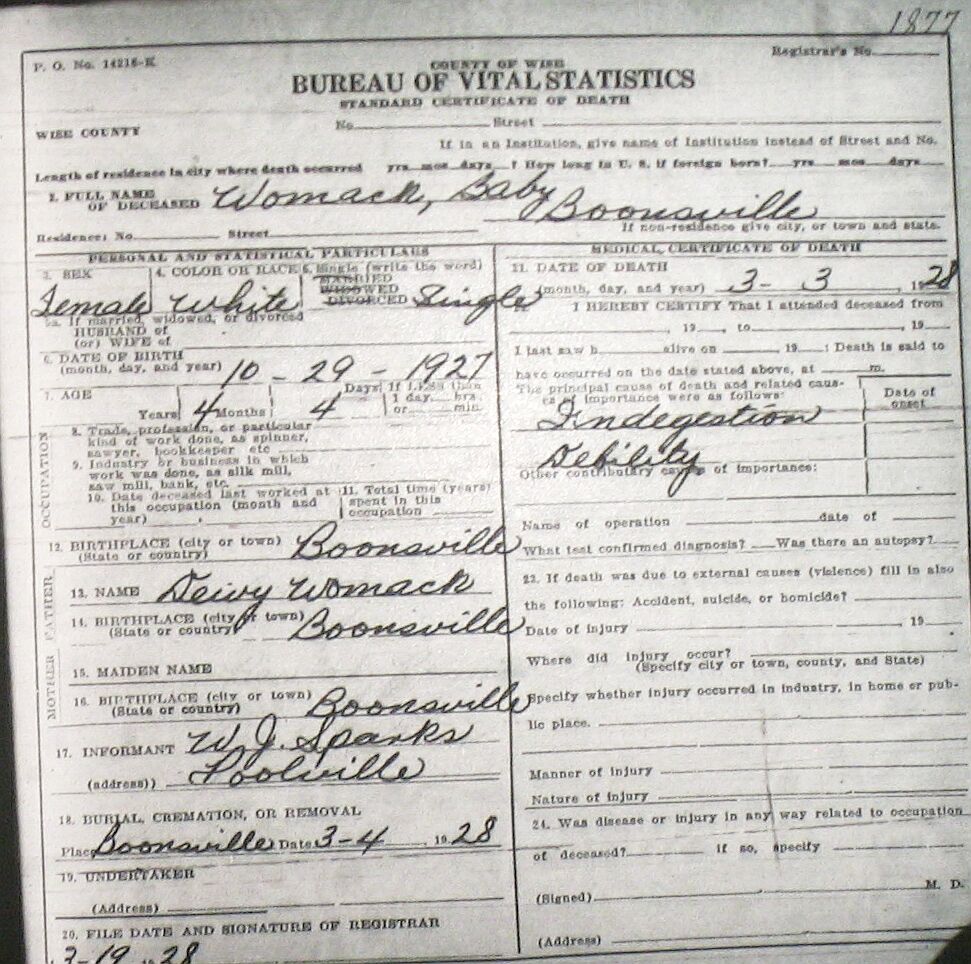 1877
P. O. No. 14216-K
Registrar's No.
COUNTY OF WISE
BUREAU OF VITAL STATISTICS
STANDARD CERTIFICATE OF DEATH
WISE COUNTY
No. Street
If in an Institution, give name of Institution instead of Street and No.
Length of residence in city where death occurred yrs mos days ? How long in U. S. if foreign born? yrs mos days
2. FULL NAME OF DECEASED Womack, Baby
Boonsville
Residence: No. Street
If non-residence give city, or town and state.
PERSONAL AND STATISTICAL PARTICULARS
3. SEX Female
4. COLOR OR RACE White
5. Single (write the word)
MARRIED
WIDOWED
DIVORCED Single
5a. If married, widowed, or divorced
HUSBAND of
(or) WIFE of
6. DATE OF BIRTH
(month, day, and year) 10 - 29 - 1927
7. AGE
Years 4 Months 4 Days If LESS than
1 day hrs.
or min.
OCCUPATION
8. Trade, profession, or particular
kind of work done, as spinner,
sawyer, bookkeeper etc
9. Industry or business in which
work was done, as silk mill,
saw mill, bank, etc.
10. Date deceased last worked at
this occupation (month and
year)
11. Total time (years)
spent in this
occupation
12. BIRTHPLACE (city or town) Boonsville
(State or country)
FATHER
13. NAME Dewy Womack
14. BIRTHPLACE (city or town) Boonsville
(State or country)
MOTHER
15. MAIDEN NAME
16. BIRTHPLACE (city or town) Boonsville
(State or country)
17. INFORMANT W. J. Sparks
(address)) Poolville
18. BURIAL, CREMATION, OR REMOVAL
Place Boonsville Date 3-4, 1928
19. UNDERTAKER
(Address)
20. FILE DATE AND SIGNATURE OF REGISTRAR
3-19 1928
MEDICAL CERTIFICATE OF DEATH
21. DATE OF DEATH
(month, day, and year) 3- 3 1928
I HEREBY CERTIFY That I attended deceased from
, 19 , to , 19
I last saw h alive on , 19 ; Death is said to
have occurred on the date stated above, at m.
The principal cause of death and related caus-
es of importance were as follows:
Date of
onset
Indegestion
Debility
Other contributory causes of importance:
Name of operation date of
What test confirmed diagnosis? Was there an autopsy?
23. If death was due to external causes (violence) fill in also
the following: Accident, suicide, or homicide?
Date of injury 19
Where did injury occur?
(Specify city or town, county, and State)
Specify whether injury occurred in industry, in home or pub-
lic place.
Manner of injury
Nature of injury
24. Was disease or injury in any way related to occupation
of deceased? if so, specify
(Signed) M. D.
(Address)